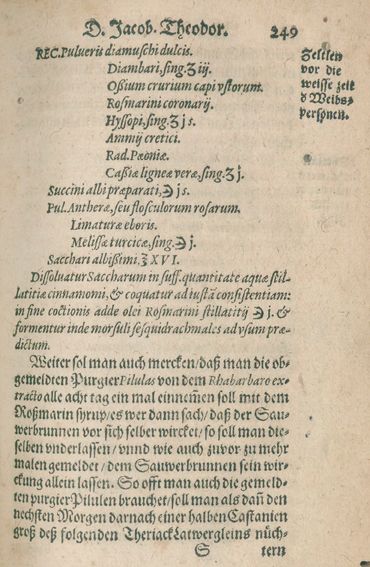 D. Jacob. Theodor. 249
REC. Pulueris diamuschi dulcis.
Diambari, sing. ʒ iij.
Oßium crurium capi vstorum.
Rosmarini coronarij.
Hyssopi, sing. ʒ j s.
Ammij cretici.
Rad. Pæoniæ.
Caßiæ ligneæ veræ, sing. ʒ j.
Succini albi præparati, ℈ j s.
Pul. Antheræ, seu flosculorum rosarum.
Limaturæ eboris.
Melissæ turcicæ, sing. ℈ j.
Sacchari albißimi, ℥ XVI.
Dissoluatur Saccharum in suff. quantitate aquæ stil-
latitiæ cinnamomi, & coquatur ad iustã consistentiam:
in fine coctionis adde olei Rosmarini stillatitij ℈ j. &
formentur inde morsuli sesquidrachmales ad vsum præ-
dictum.
Zeltlen
vor die
weisse zeit
d Weibs-
personen.
Weiter sol man auch mercken / daß man die ob-
gemeldten Purgier Pilulas von dem Rhabarbaro ex-
tracto alle acht tag ein mal einnem̃en soll mit dem
Roßmarin syrup / es wer dann sach / daß der Sau-
werbrunnen vor sich selber wircket / so soll man die-
selben vnderlassen / vnnd wie auch zuvor zu mehr
malen gemeldet / dem Sauwerbrunnen sein wir-
ckung allein lassen. So offt man auch die gemeld-
ten purgier Pilulen brauchet / soll man als dañ den
nechsten Morgen darnach einer halben Castanien
groß deß folgenden Theriack Latwergleins nüch-
S tern